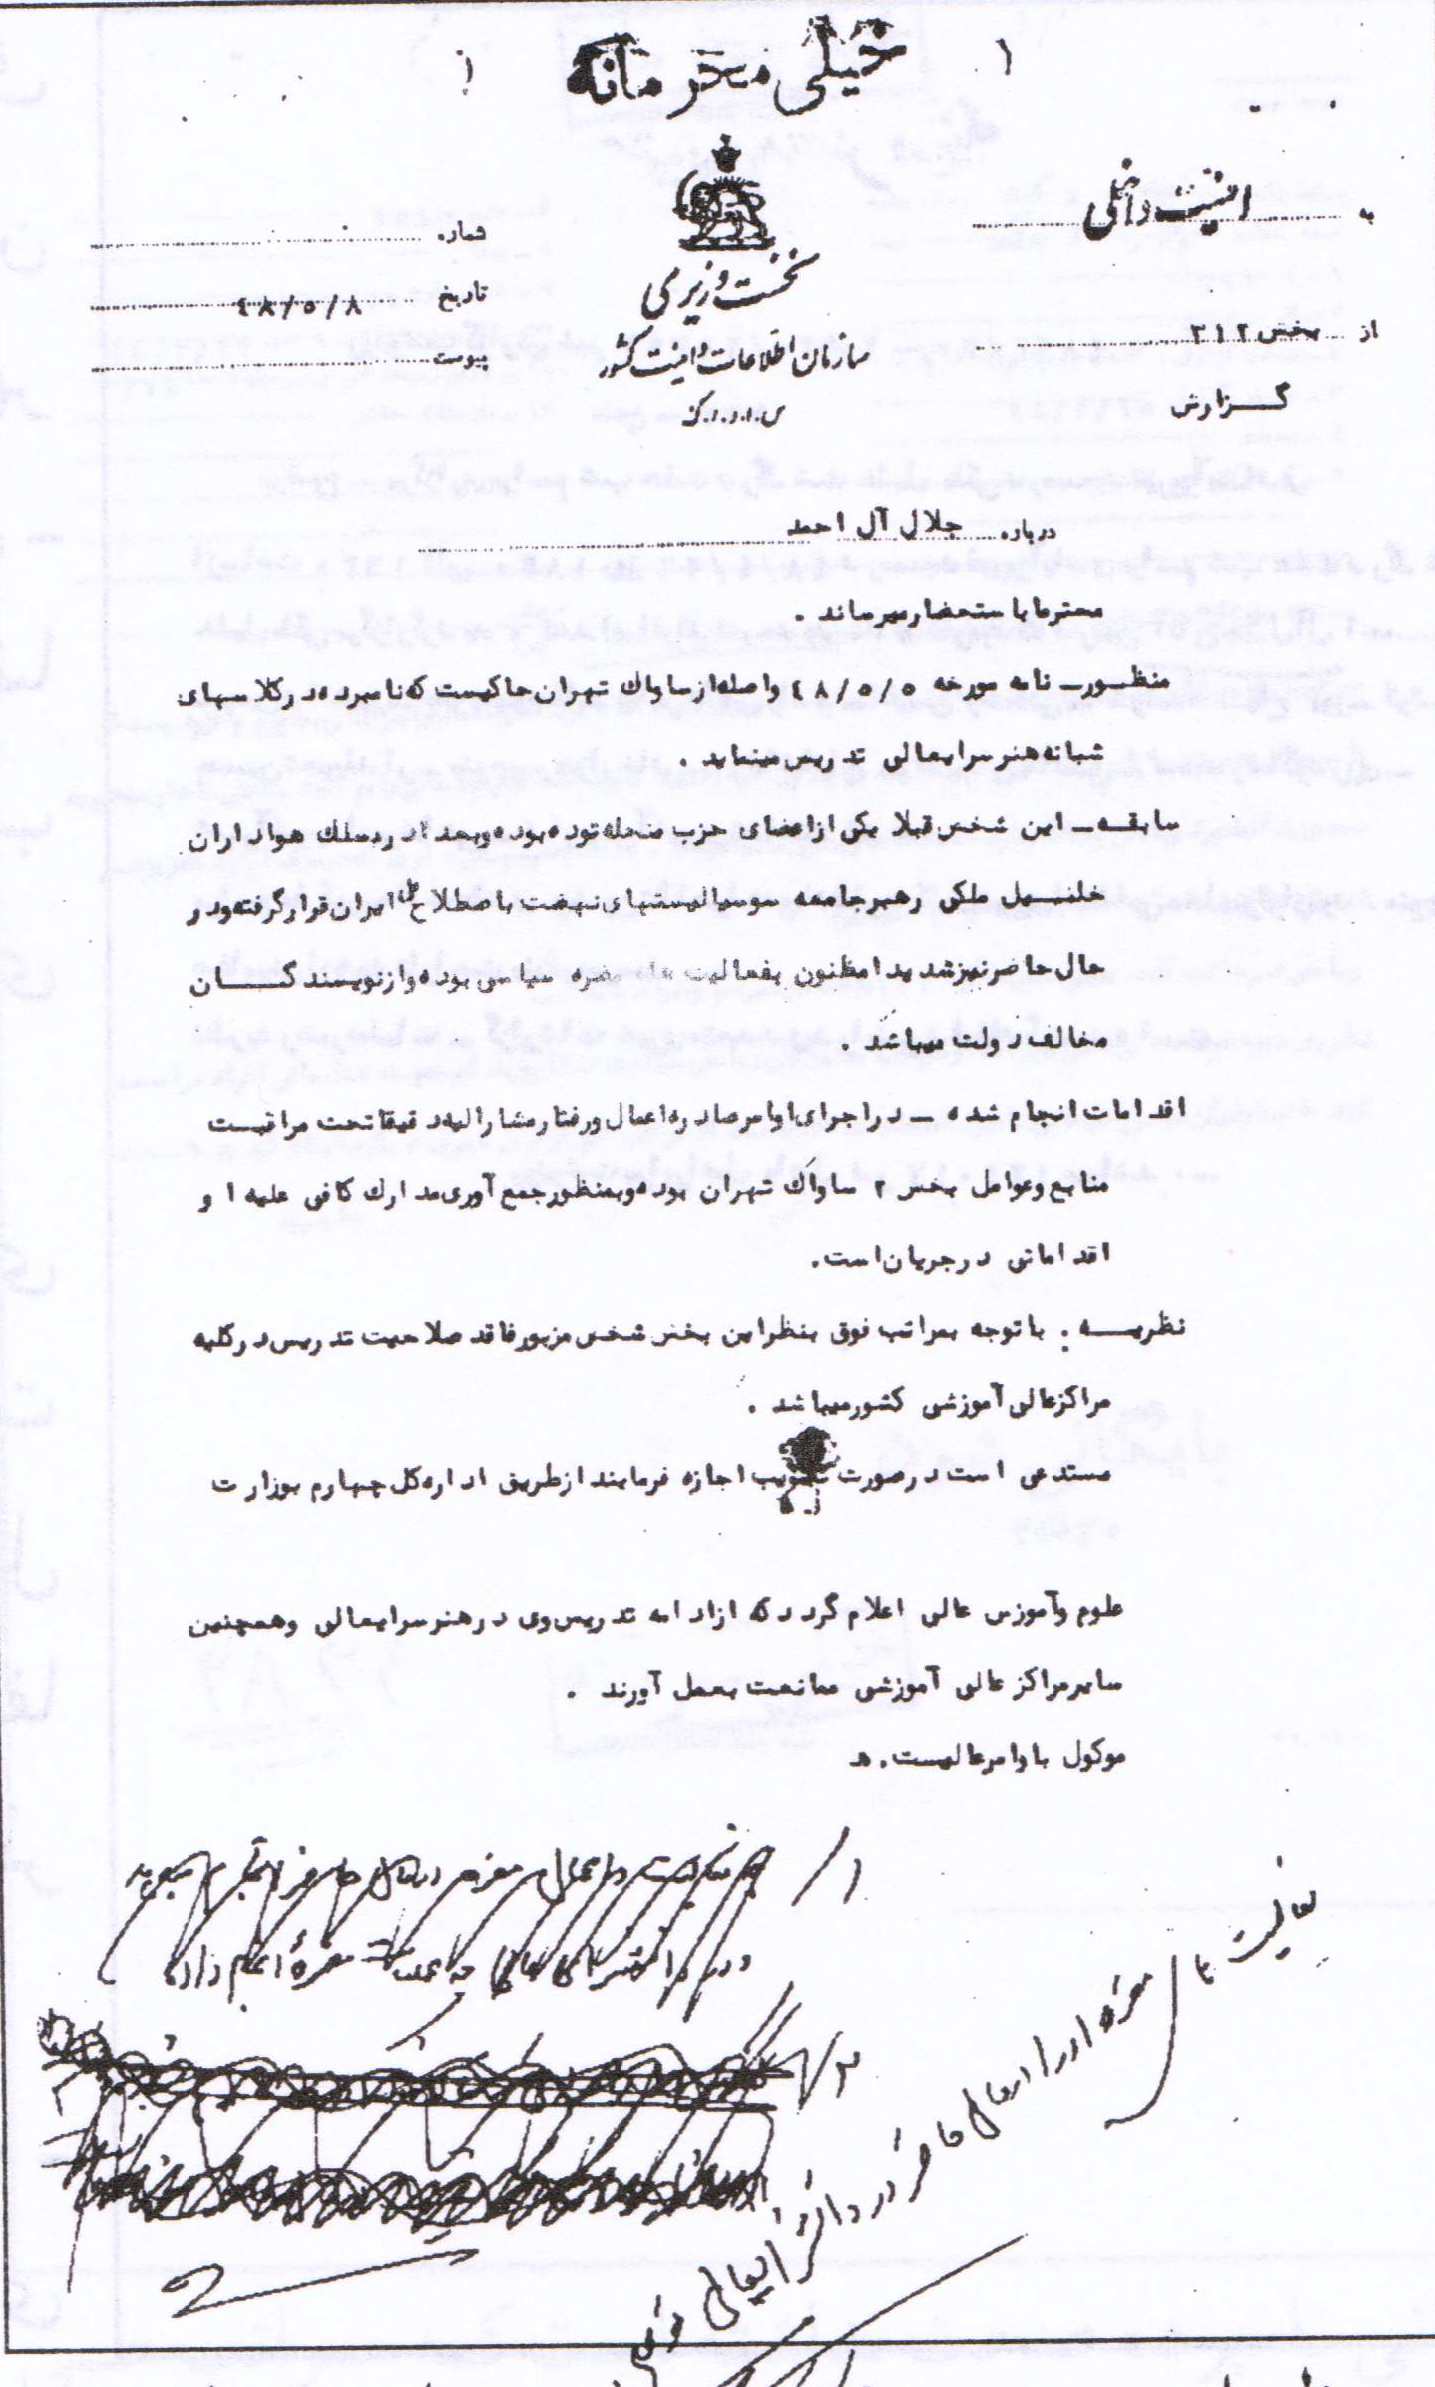 خیلی محرمانه
به امنیت داخلی
شماره
نخست وزیری
تاریخ ۴۸/۵/۸
سازمان اطلاعات و امنیت کشور
از بخش ۳۱۲
پیوست
س.ا.و.ا.ک
گزارش
درباره جلال آل احمد
محترما باستحضار میرساند .
منظور ــ نامه مورخه ۴۸/۵/۵ واصله از ساواک تهران حاکیست که نامبرده در کلاسهای
شبانه هنرسرایعالی تدریس مینماید .
سابقه ــ این شخص قبلا یکی از اعضای حزب منحله توده بوده و بعدا در مسلک هواداران
خلیل ملکی رهبر جامعه سوسیالیستهای نهضت باصطلاح ملی ایران قرار گرفته و در
حال حاضر نیز شدیدا مظنون بفعالیت های مضره سیاسی بوده و از نویسندگان
مخالف دولت میباشد .
اقدامات انجام شده ــ در اجرای اوامر صادره اعمال و رفتار مشارالیه دقیقا تحت مراقبت
منابع و عوامل بخش ۳ ساواک تهران بوده و بمنظور جمع آوری مدارک کافی علیه او
اقداماتی در جریان است .
نظریه : با توجه بمراتب فوق بنظر این بخش شخص مزبور فاقد صلاحیت تدریس در کلیه
مراکز عالی آموزشی کشور میباشد .
مستدعی است در صورت تصویب اجازه فرمایند از طریق اداره کل چهارم بوزارت
علوم و آموزش عالی اعلام گردد که از ادامه تدریس وی در هنرسرایعالی و همچنین
سایر مراکز عالی آموزشی ممانعت بعمل آورند .
موکول باوامر عالیست . ه
۱/
۲/
فعالیت های مضره او را در حال حاضر در